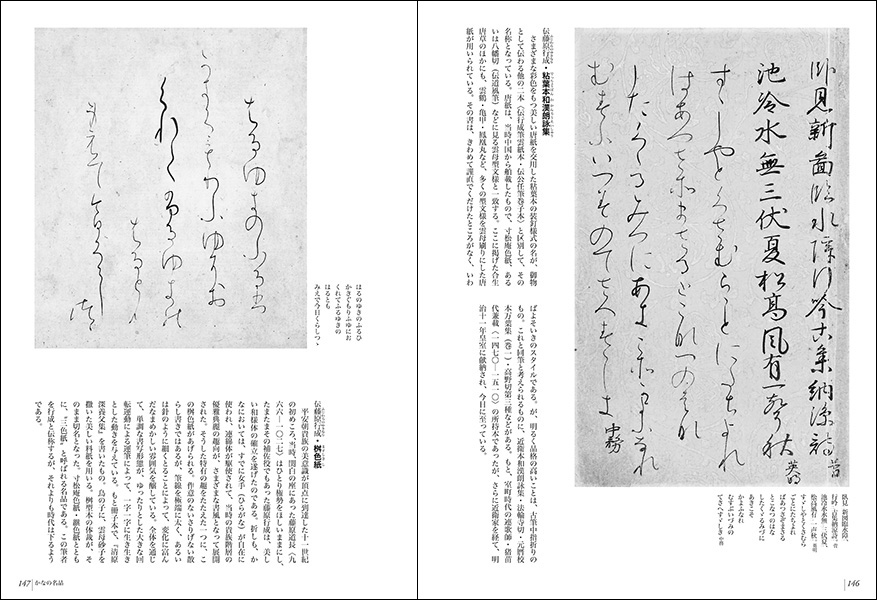 臥見新図臨水障行吟古集納涼詩 菅
池冷水無三伏夏松高風有一声秋 英明
すゝしやとくさむらことにたちよれ
はあつさそまさるとこなつのはな
したくゝるみつにあきこそかよふなれ
むすふいつみのてさへすゝしき 中務
伝藤原行成・粘葉本和漢朗詠集
さまざまな彩色をもつ美しい唐紙を交用した粘葉本の装釘様式の名が、御物
として伝わる他の二本(伝行成筆雲紙本・伝公任筆巻子本)と区別して、その
名称となっている。唐紙は、当時中国から舶載したもので、寸松庵色紙、ある
いは八幡切(伝道風筆)などに見る雲母型文様と一致する。ここに掲げた合生
唐草のほかにも、雲鶴・亀甲・鳳凰丸など、多くの型文様を雲母刷りにした唐
紙が用いられている。その書は、きわめて謹直でくだけたところがなく、いわ
ばよそいきのスタイルである。が、明るく品格の高いことは、古筆中指折りの
もの。これと同筆と考えられるものに、近衛本和漢朗詠集・法輪寺切・元暦校
本万葉集(巻一)・高野切第三種などがある。もと、室町時代の連歌師・猪苗
代兼載(一四七〇―一五一〇)の所持本であったが、さらに近衛家を経て、明
治十一年皇室に献納され、今日に至っている。
146
はるのゆきのふるひ
かきくもりふゆにお
くれてふるゆきの
はるとも
みえで今日くらしつゝ
伝藤原行成・桝色紙
平安朝貴族の美意識が頂点に到達した十一世紀
の初めころ。当時、関白の座にあった藤原道長(九
六六―一〇二七)はひとり権勢をほしいままにし、
たまたまその補佐役でもあった藤原行成は、美し
い和様体の確立を遂げたのである。折しも、か
なにおいては、すでに女手(ひらがな)が自在に
使われ、連綿体が駆使されて、当時の貴族階層の
優雅典麗の趣向が、さまざまな書風となって展開
された。そうした特有の趣をたたえた一つに、こ
の桝色紙があげられる。作意のないさりげない散
らし書きではあるが、筆線を極端に太く、あるい
は針のように細くとることによって、変化に富ん
だなまめかしい雰囲気を醸している。全体を通じ
て、単調な書写形態が、ゆったりとした大きな回
転運動による運筆によって、一字一字に生き生き
とした動きを与えている。もと冊子本で、『清原
深養父集』を書いたもの。鳥の子に、雲母砂子を
撒いた美しい料紙を用いる。桝型本の体裁が、そ
のまま切名となった。寸松庵色紙・継色紙ととも
に、「三色紙」と呼ばれる名品である。この筆者
を行成と伝称するが、それよりも時代は下るよう
である。
147 かなの名品